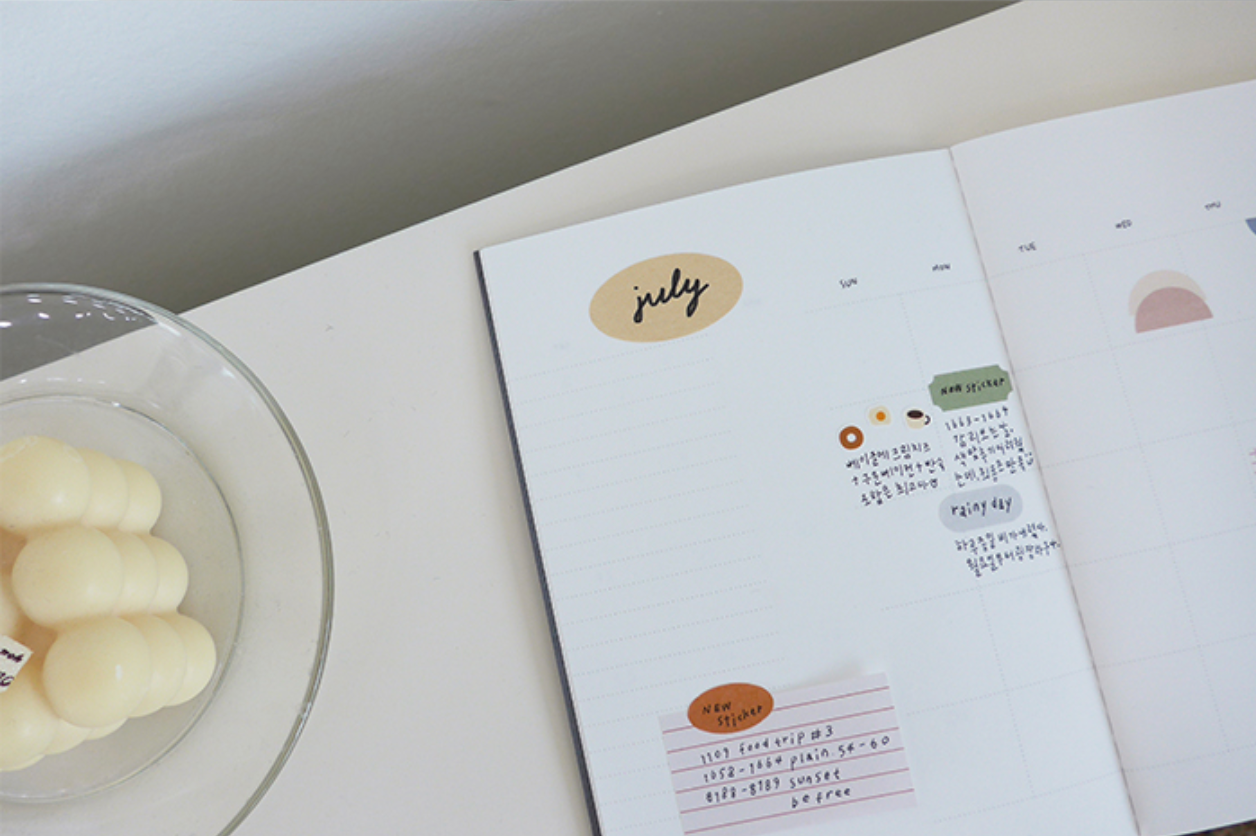 july
SUN
MON
TUE
WED
THU
NEW sticker
1663-1664
베이글에 크림치즈
+구운베이컨+반숙
조합은 최고다
rainy day
하루종일 비가 내렸다.
NEW
sticker
1109 food trip #3
1658-1664 plain. 54-60
8188-8189 sunset
be free